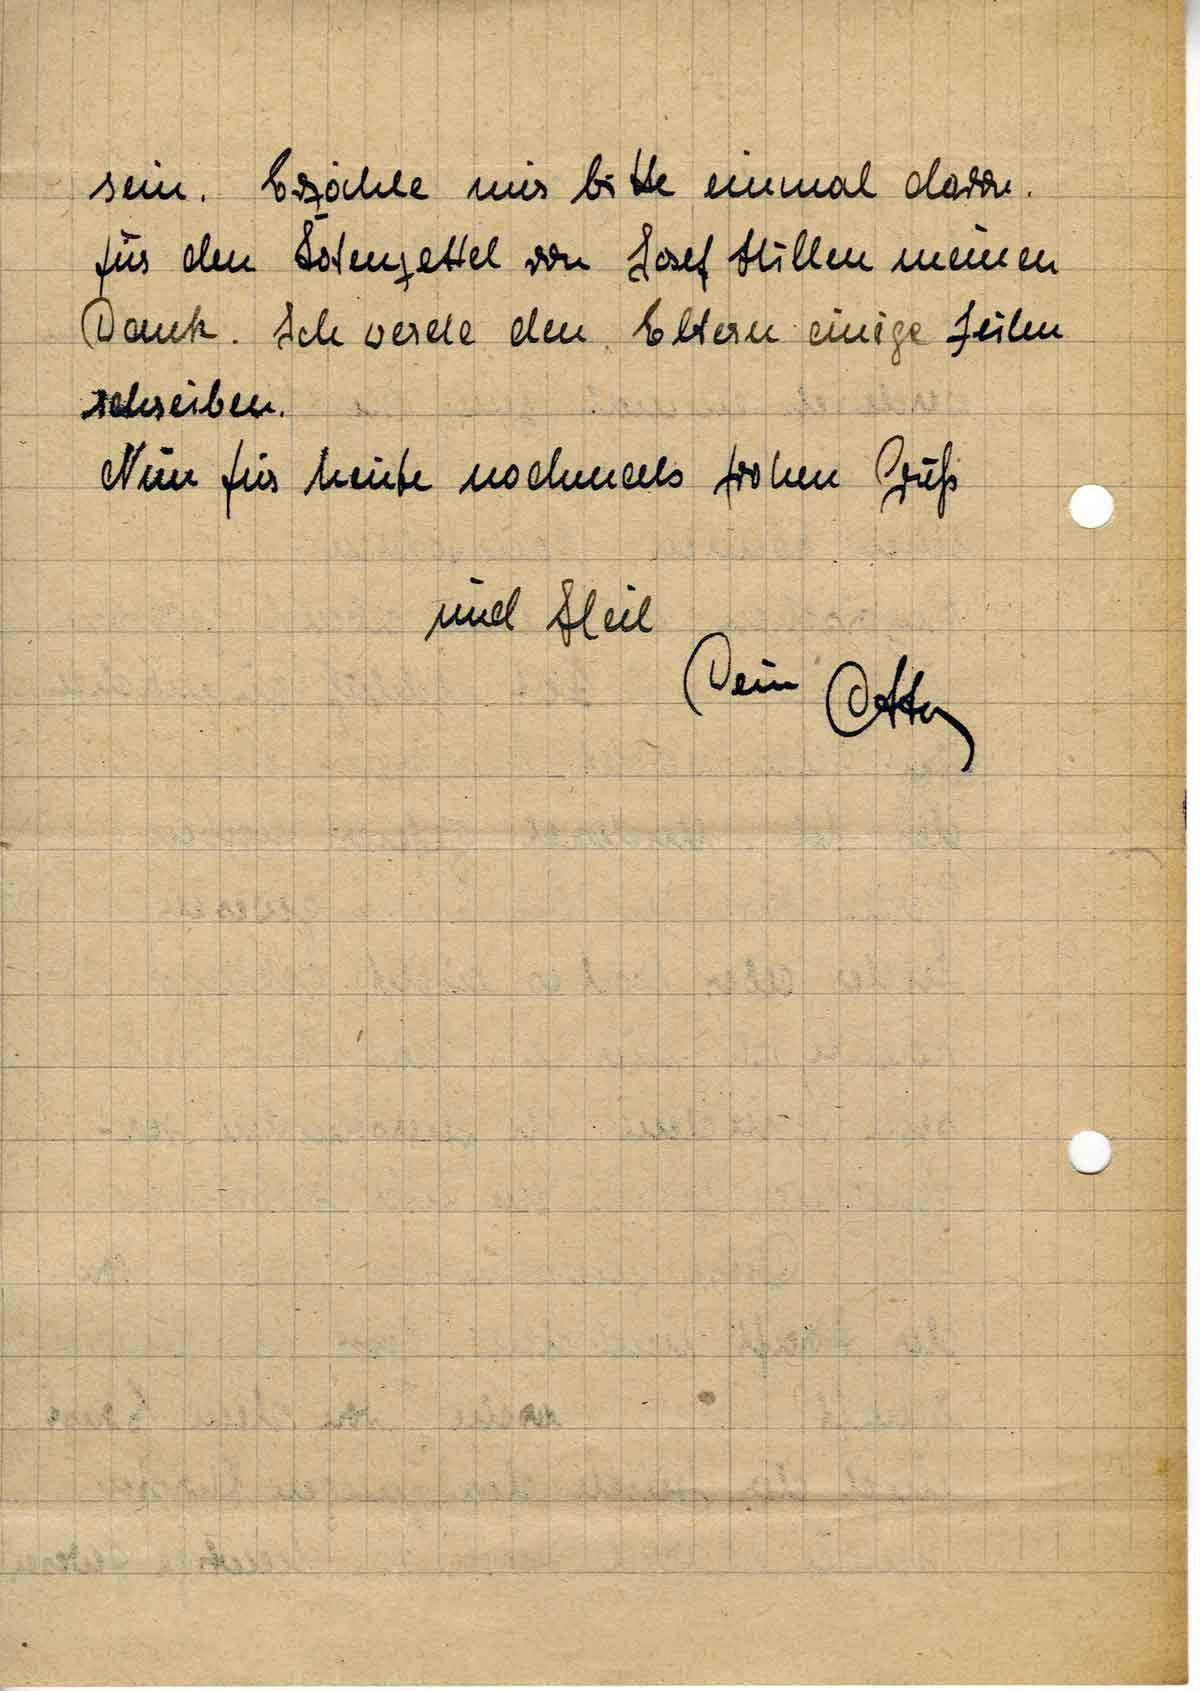 sein. Erzähle mir bitte einmal davon.
für den Totenzettel von Josef Hillen meinen
Dank. Ich werde den Eltern einige Zeilen
schreiben.
Nun für heute nochmals frohen Gruß
und Heil
Dein Otto